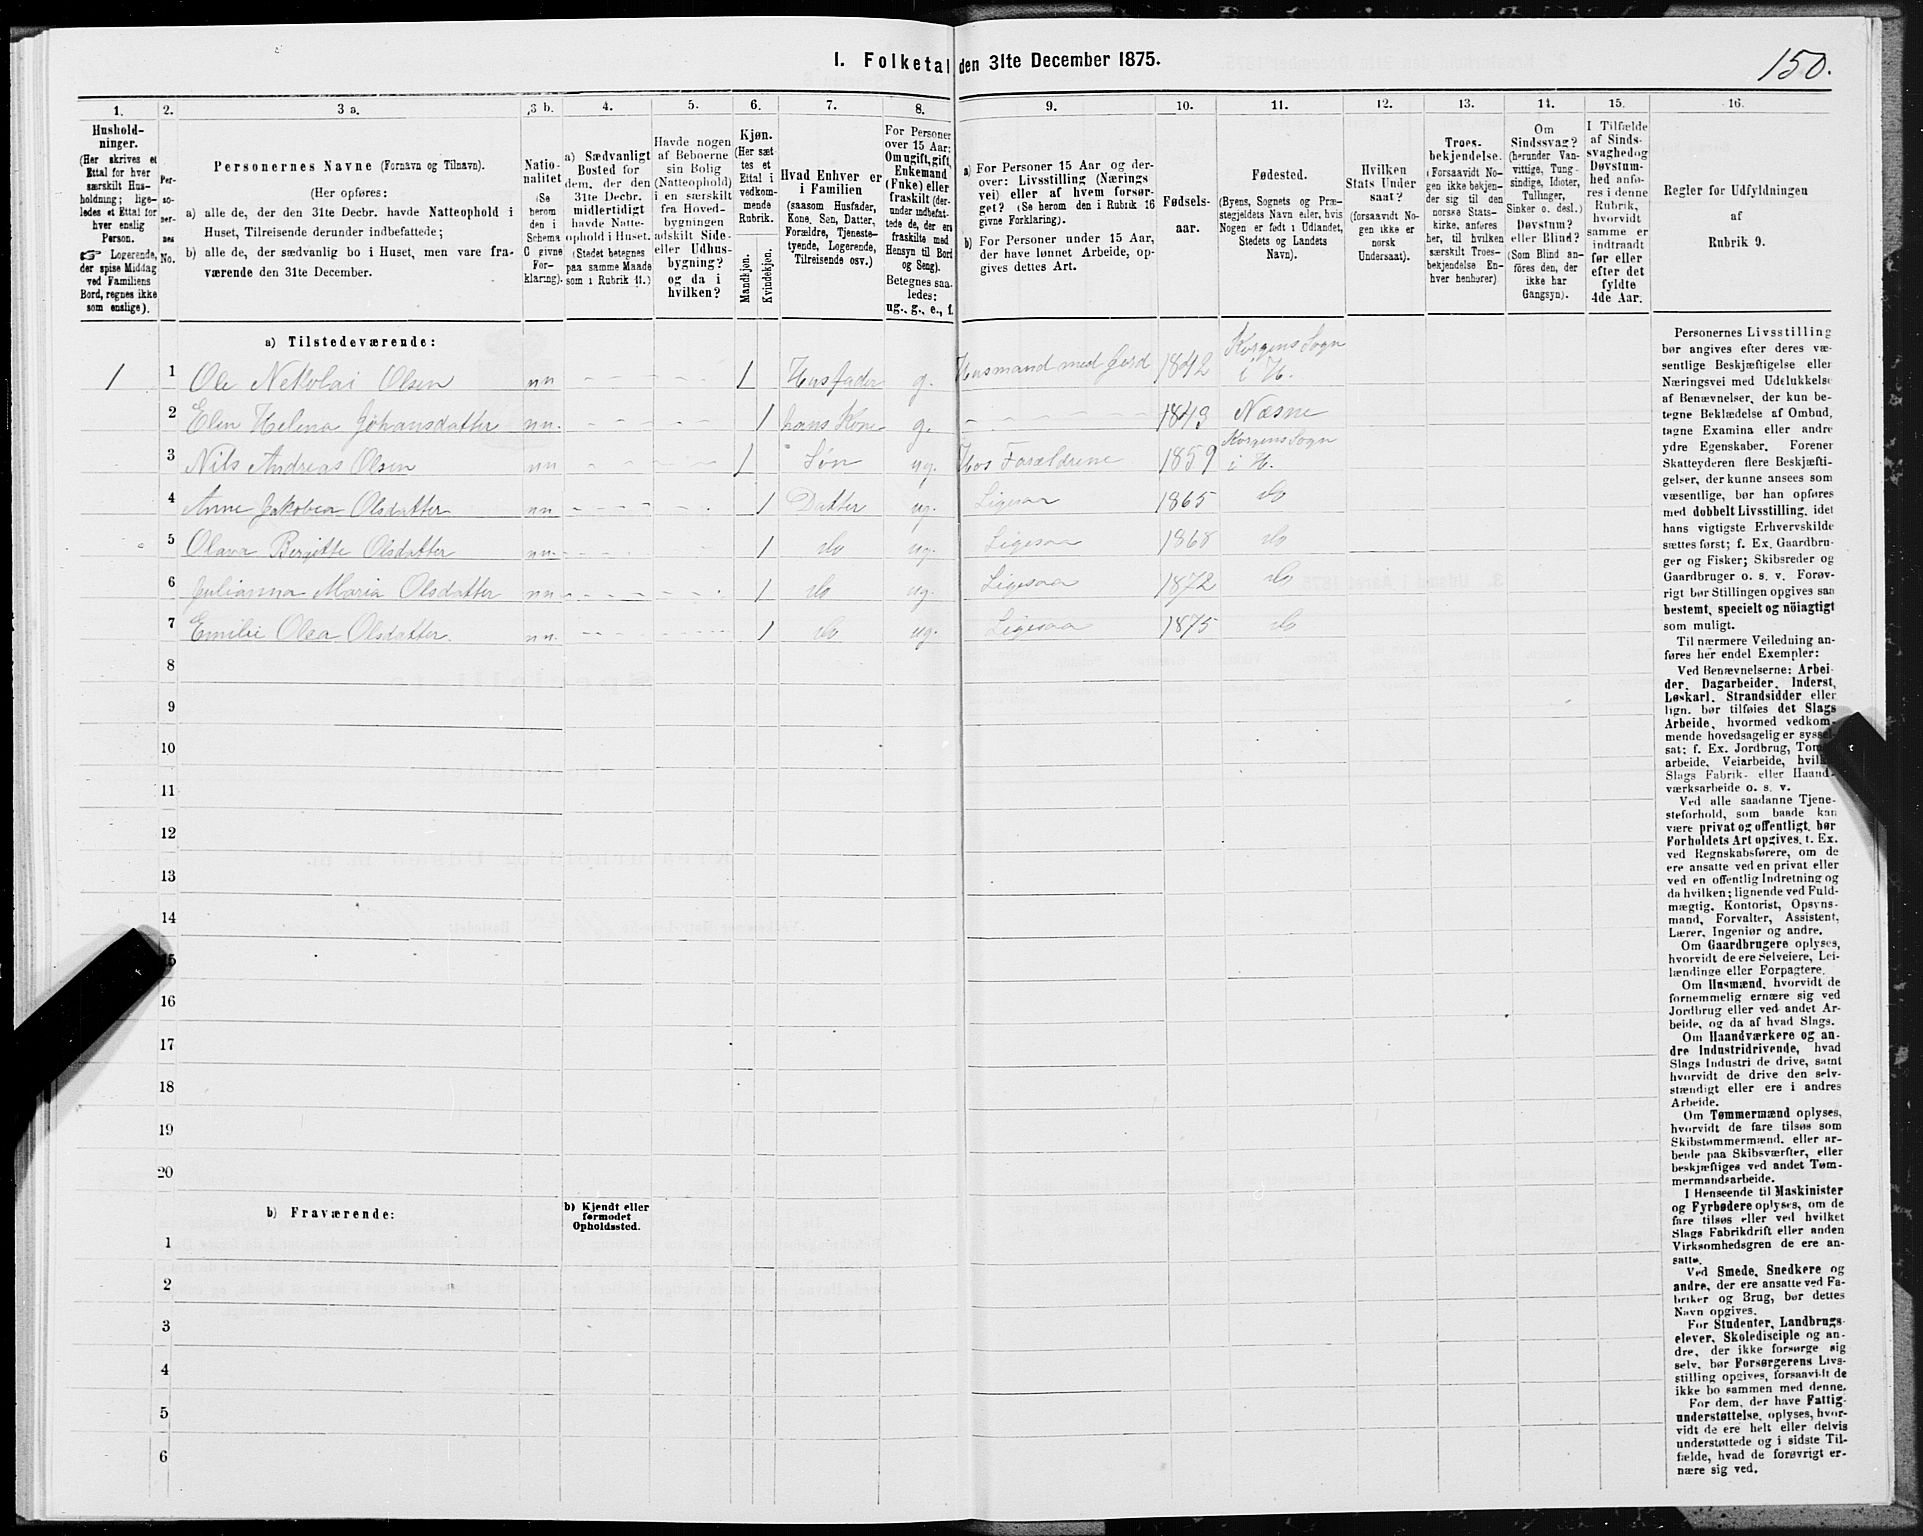 I. Folketal den 31te December 1875.
150.
1.
2.
3 a.
3 b.
4.
5.
6.
7.
8.
9.
10.
11.
12.
13.
14.
15.
16.
Hushold-
ninger.
(Her skrives et
Ettal for hver
særskilt Hus-
holdning; lige-
ledes et Ettal for
hver enslig
Person.
☞ Logerende,
der spise Middag
ved Familiens
Bord, regnes ikke
som enslige).
Per-
so-
ner-
nes
No.
Personernes Navne (Fornavn og Tilnavn).
(Her opføres:
a) alle de, der den 31te Decbr. havde Natteophold i
Huset, Tilreisende derunder indbefattede;
b) alle de, der sædvanlig bo i Huset, men vare fra-
værende den 31te December.
Natio-
nalitet
(Se
herom
den i
Schema
C givne
For-
klaring).
a) Sædvanligt
Bosted for
dem, der den
31te Decbr.
midlertidigt
havde Natte-
ophold i Huset.
(Stedet betegnes
paa samme Maade
som i Rubrik 11.)
Havde nogen
af Beboerne
sin Bolig
(Natteophold)
i en særskilt
fra Hoved-
bygningen
adskilt Side-
eller Udhus-
bygning?
og da i
hvilken?
Kjøn.
(Her sæt
tes et
Ettal i
vedkom-
mende
Rubrik.
Mandkjøn.
Kvindekjøn.
Hvad Enhver er
i Familien
(saasom Husfader,
Kone, Søn, Datter,
Forældre, Tjeneste-
tyende, Logerende,
Tilreisende osv.)
For Personer
over 15 Aar:
Om ugift, gift,
Enkemand
(Enke) eller
fraskilt (der-
under indbefat-
tede de, der ere
fraskilte med
Hensyn til Bord
og Seng).
Betegnes saa-
ledes:
ug., g., e., f.
a) For Personer 15 Aar og der-
over: Livsstilling (Nærings
vei) eller af hvem forsør-
get? (Se herom den i Rubrik 16
givne Forklaring).
b) For Personer under 15 Aar,
der have lønnet Arbeide, op-
gives dettes Art.
Fødsels-
aar.
Fødested.
(Byens, Sognets og Præ-
stegjeldets Navn eller, hvis
Nogen er født i Udlandet,
Stedets og Landets
Navn).
Hvilken
Stats Under
saat?
(forsaavidt No-
gen ikke er
norsk
Undersaat).
Troes-
bekjendelse.
(Forsaavidt No
gen ikke bekjen-
der sig til den
norske Stats-
kirke, anføres
her, til hvilken
særskilt Troes-
bekjendelse En-
hver henhører)
Om
Sindssvag?
(herunder Van-
vittige, Tung-
sindige, Idioter,
Tullinger,
Sinker o. desl.)
Døvstum?
eller Blind?
(Som Blind an-
føres den, der
ikke har
Gangsyn).
I Tilfælde
af Sinds-
svaghed og
Døvstum-
hed anfø-
res i denne
Rubrik,
hvorvidt
samme er
indtraadt
før eller
efter det
fyldte
4de Aar.
Regler for Udfyldningen
af
Rubrik 9.
a) Tilstedeværende:
1 1 Ole Nekolai Olsen nn - - - - - 1 Husfader g. Husmand med Jord 1842 Korgens Sogn i H.
2 Elen Helena Johansdatter nn. - - - - - 1 hans Kone g. - - - - - 1843 Næsne
3 Nils Andreas Olsen nn - - - - - 1 Søn ug. Hos Forældrene 1859 Korgens Sogn i H.
4 Anne Jakobea Olsdatter nn - - - - - 1 Datter ug. Ligesaa 1865 do
5 Olava Bergitte Olsdatter nn. - - - - - 1 do ug. Ligesaa 1868 do
6 Julianna Maria Olsdatter nn - - - - - 1 do ug. Ligesaa 1872 do
7 Emilie Olea Olsdatter. nn. - - - - - 1 do ug. Ligesaa 1875 do
8
9
10
11
12
13
14
15
16
17
18
19
20
b) Fraværende:
b) Kjendt eller
formodet
Opholdssted.
1
2
3
4
5
6
Personernes Livsstilling
bør angives efter deres væ-
sentlige Beskjæftigelse eller
Næringsvei med Udelukkelse
af Benævnelser, der kun be-
tegne Beklædelse af Ombud,
tagne Examina eller andre
ydre Egenskaber. Forener
Skatteyderen flere Beskjæfti-
gelser, der kunne ansees som
væsentlige, bør han opføres
med dobbelt Livsstilling, idet
hans vigtigste Erhvervskilde
sættes først; f. Ex. Gaardbru-
ger og Fisker; Skibsreder og
Gaardbruger o. s. v. Forøv-
rigt bør Stillingen opgives saa
bestemt, specielt og nöiagtigt
som muligt.
Til nærmere Veiledning an-
føres her endel Exempler:
Ved Benævnelserne: Arbei-
der, Dagarbeider, Inderst,
Løskarl, Strandsidder eller
lign. bør tilføies det Slags
Arbeide, hvormed vedkom-
mende hovedsagelig er syssel-
sat; f. Ex. Jordbrug, Tom-
arbeide, Veiarbeide, hvilk
Slags Fabrik- eller Haand-
værksarbeide o. s. v.
Ved alle saadanne Tjene-
steforhold, som baade kan
være privat og offentligt, bør
Forholdets Art opgives, t. Ex.
ved Regnskabsførere, om de
ere ansatte ved en privat eller
ved en offentlig Indretning og
da hvilken; lignende ved Fuld-
mægtig, Kontorist, Opsyns-
mand, Forvalter, Assistent,
Lærer, Ingeniør og andre.
Om Gaardbrugere oplyses,
hvorvidt de ere Selveiere, Lei-
lændinge eller Forpagtere.
Om Husmænd, hvorvidt de
fornemmelig ernære sig ved
Jordbrug eller ved andet Ar-
beide, og da af hvad Slags.
Om Haandværkere og an-
dre Industridrivende, hvad
Slags Industri de drive, samt
hvorvidt de drive den selv-
stændigt eller ere i andres
Arbeide.
Om Tømmermænd oplyses,
hvorvidt de fare tilsøs som
Skibstømmermænd, eller ar-
beide paa Skibsværfter, eller
beskjæftiges ved andet Tøm-
mermandsarbeide.
I Henseende til Maskinister
og Fyrbødere oplyses, om de
fare tilsøs eller ved hvilket
Slags Fabrikdrift eller anden
Virksomhedsgren de ere an-
satte.
Ved Smede, Snedkere og
andre, der ere ansatte ved Fa-
briker og Brug, bør dettes
Navn opgives.
For Studenter, Landbrugs-
elever, Skoledisciple og an-
dre, der ikke forsørge sig
selv, bør Forsørgerens Livs-
stilling opgives, forsaavidt de
ikke bo sammen med denne.
For dem, der have Fattig-
understøttelse, oplyses, hvor-
vidt de ere helt eller delvis
understøttede og i sidste Til-
fælde, hvad de forøvrigt er-
nære sig ved.